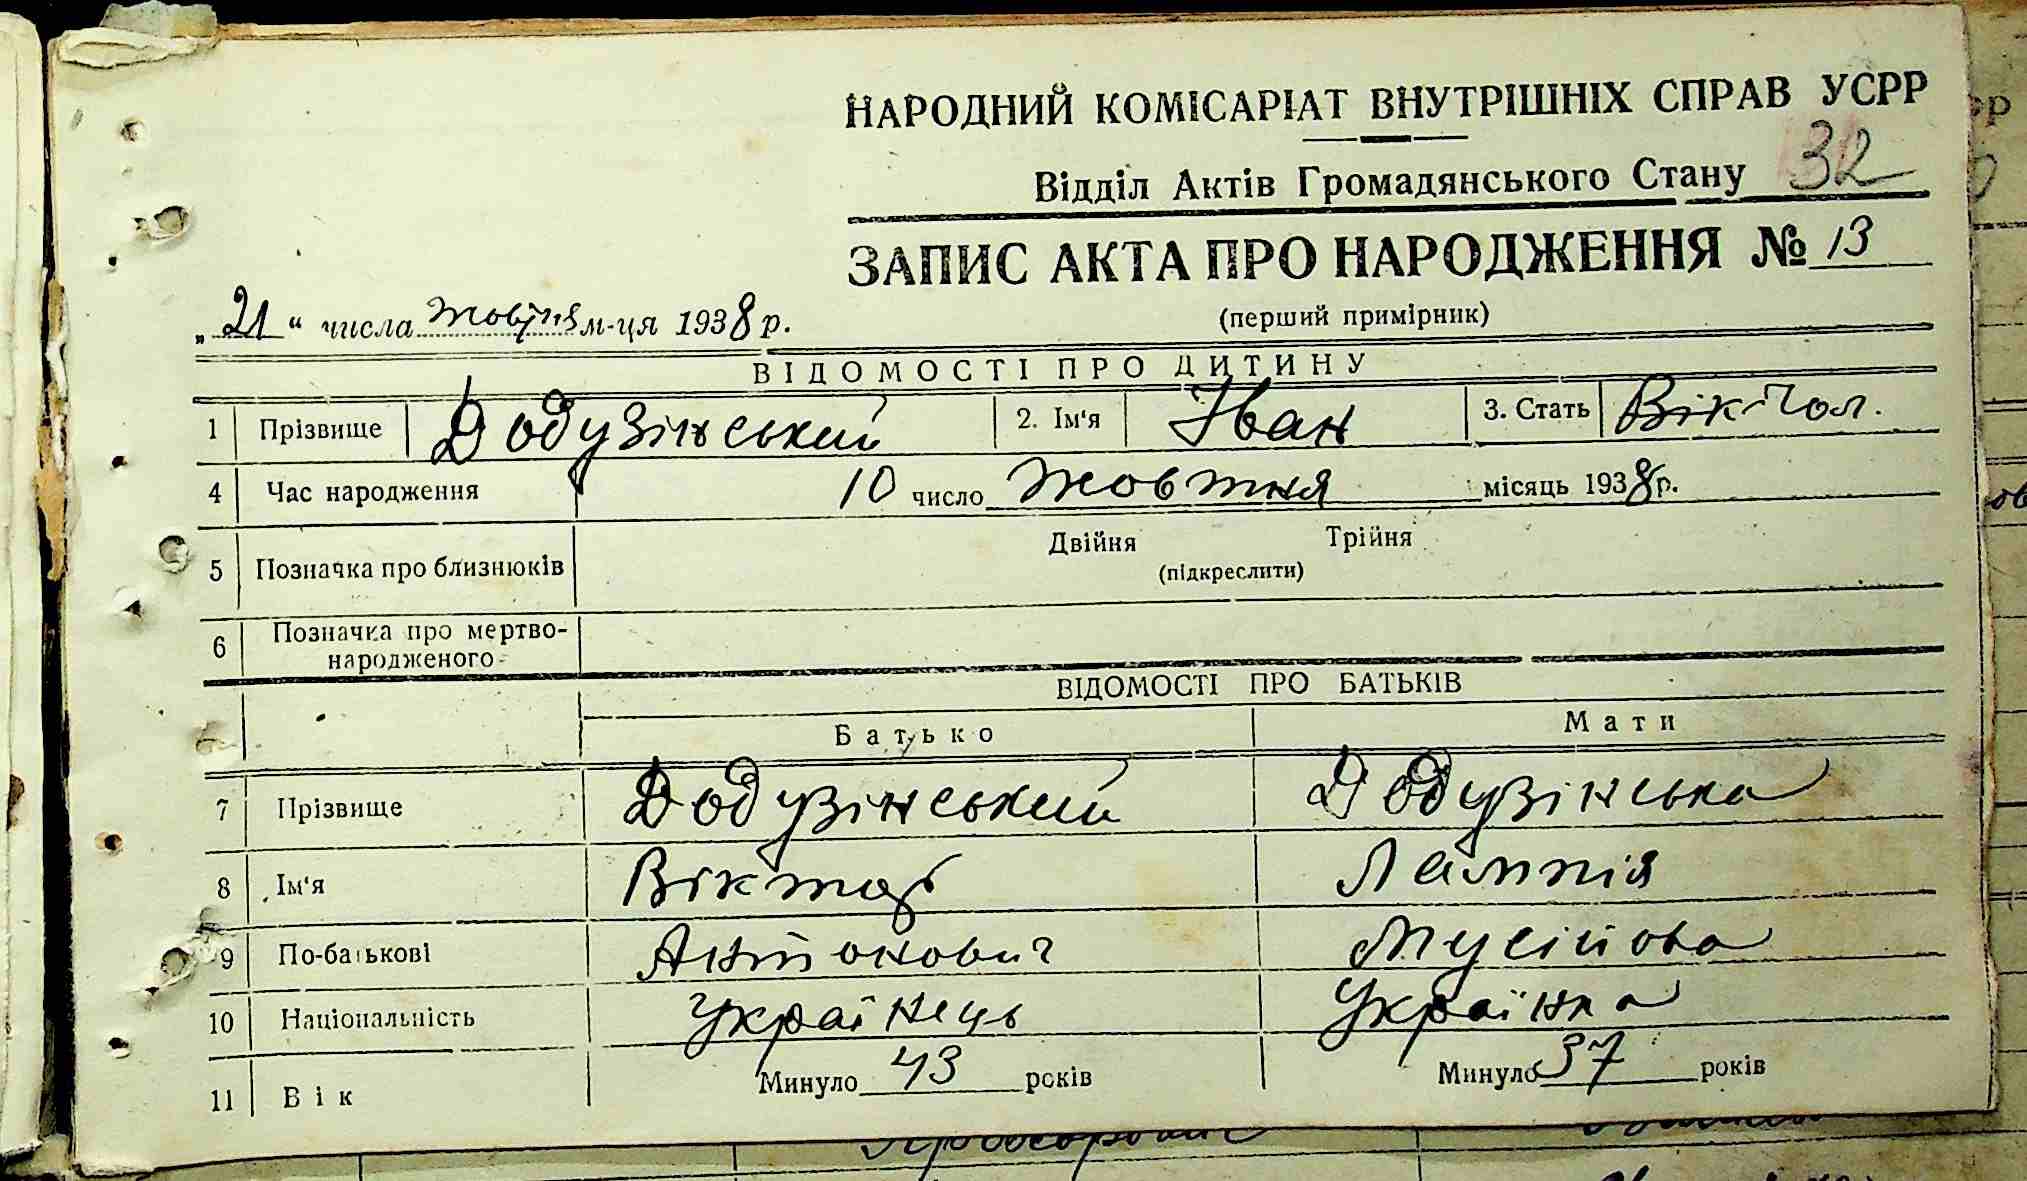 НАРОДНИЙ КОМІСАРІАТ ВНУТРІШНІХ СПРАВ УСРР
Відділ Актів Громадянського Стану 32
ЗАПИС АКТА ПРО НАРОДЖЕННЯ № 13
„21“ числа жовтня м-ця 1938 р.
(перший примірник)
ВІДОМОСТІ ПРО ДИТИНУ
1 Прізвище Додузінський 2. Ім'я Іван 3. Стать чол.
4 Час народження 10 число жовтня місяць 1938 р.
5 Позначка про близнюків Двійня Трійня
(підкреслити)
6 Позначка про мертво-
народженого
ВІДОМОСТІ ПРО БАТЬКІВ
Батько Мати
7 Прізвище Додузінський Додузінська
8 Ім'я Віктор Лампія
9 По-батькові Антонович Мусійова
10 Національність Українець Українка
11 Вік Минуло 43 років Минуло 37 років